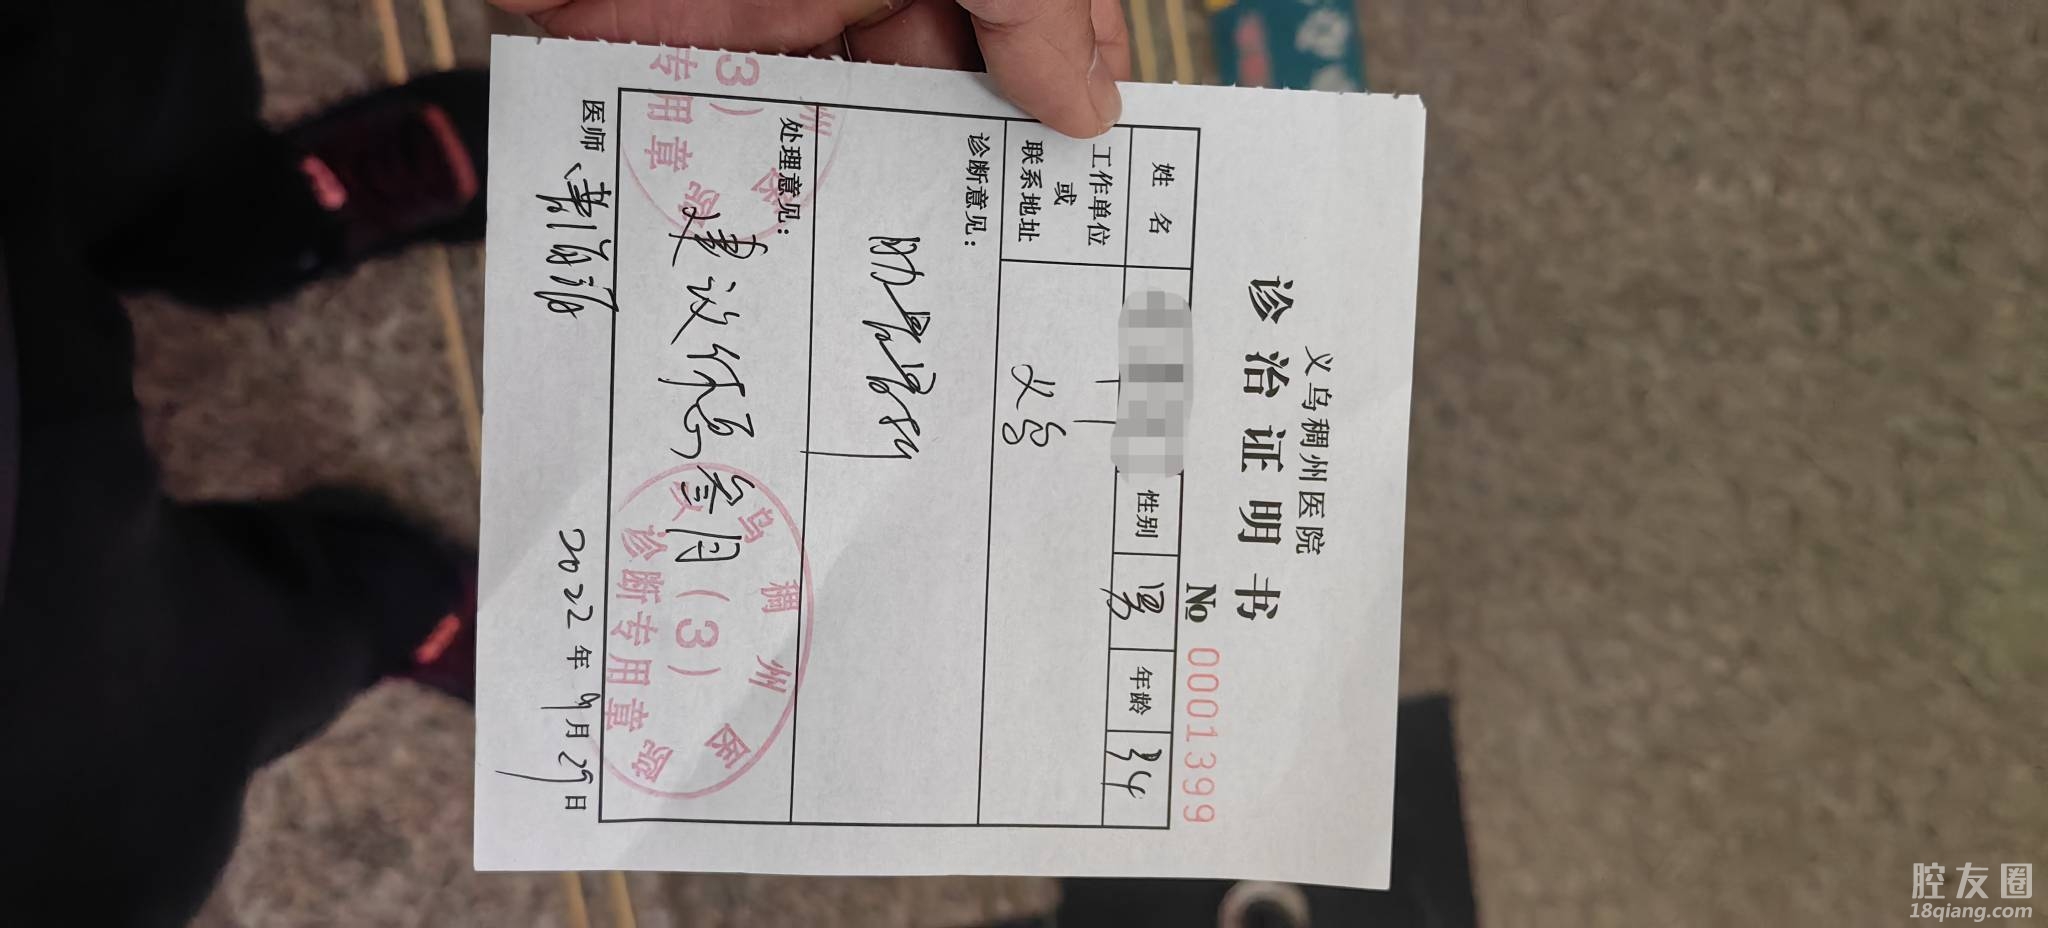 义乌稠州医院
诊治证明书
№ 0001399
姓 名 性别 男 年龄 34
工作单位
或
联系地址 义乌
诊断意见：
处理意见：
建议休息叁月
义乌稠州医院
(3)
诊断专用章
州 医 院
3)
专用章
医师
2022年9月29日
腔友圈
18qiang.com